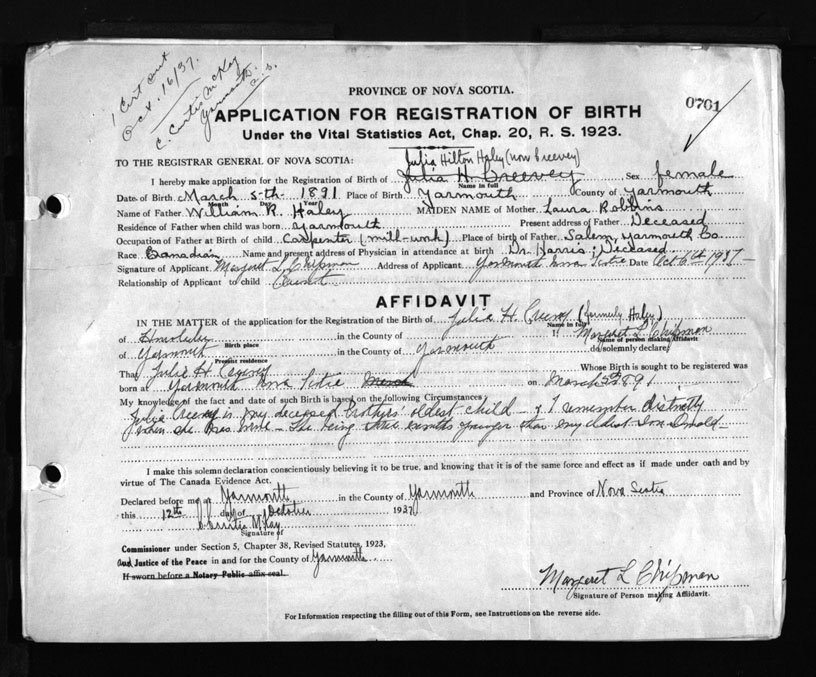 1 Cert out
Oct. 16/37.
C. Curtis McKay
Yarmouth
N. S.
0701
PROVINCE OF NOVA SCOTIA.
APPLICATION FOR REGISTRATION OF BIRTH
Under the Vital Statistics Act, Chap. 20, R. S. 1923.
Julia Hilton Haley (now Creevey)
TO THE REGISTRAR GENERAL OF NOVA SCOTIA:
I hereby make application for Registration of Birth of Julia H. Creevey Sex female
Name in full
Date of Birth March 5th 1891 Place of Birth Yarmouth County of Yarmouth
Month Day Year
Name of Father William R. Haley MAIDEN NAME of Mother Laura Robbins
Residence of Father when child was born Yarmouth Present address of Father Deceased
Occupation of Father at Birth of child Carpenter (mill-work) Place of birth of Father Salem, Yarmouth Co
Race Canadian Name and present address of Physician in attendance at birth Dr Harris; Deceased
Signature of Applicant Margaret L Chipman Address of Applicant Yarmouth Nova Scotia Date Oct 6th 1937
Relationship of Applicant to child Aunt
AFFIDAVIT
IN THE MATTER of the application for the Registration of the Birth of Julia H. Creevey (formerly Haley)
Name in full
of in the County of I, Margaret L Chipman
Birth place Name of person making Affidavit
of Yarmouth in the County of Yarmouth do solemnly declare
Present residence
That Julia H Creevey Whose Birth is sought to be registered was
born at Yarmouth Nova Scotia March on March 5th 1891
My knowledge of the fact and date of such Birth is based on the following Circumstances
Julia Creevey is my deceased brothers' oldest child - & I remember distinctly
when she was born - She being months younger than my oldest son Donald
I make this solemn declaration conscientiously believing it to be true, and knowing that it is of the same force and effect as if made under oath and by
virtue of The Canada Evidence Act.
Declared before me at Yarmouth in the County of Yarmouth and Province of Nova Scotia
this 12th day of October 1937
C Curtis McKay
Signature of
Commissioner under Section 5, Chapter 38, Revised Statutes, 1923,
Justice of the Peace in and for the County of Yarmouth
If sworn before a Notary Public affix seal.
Margaret L Chipman
(Signature of Person making Affidavit.
For Information respecting the filling out of this Form, see Instructions on the reverse side.